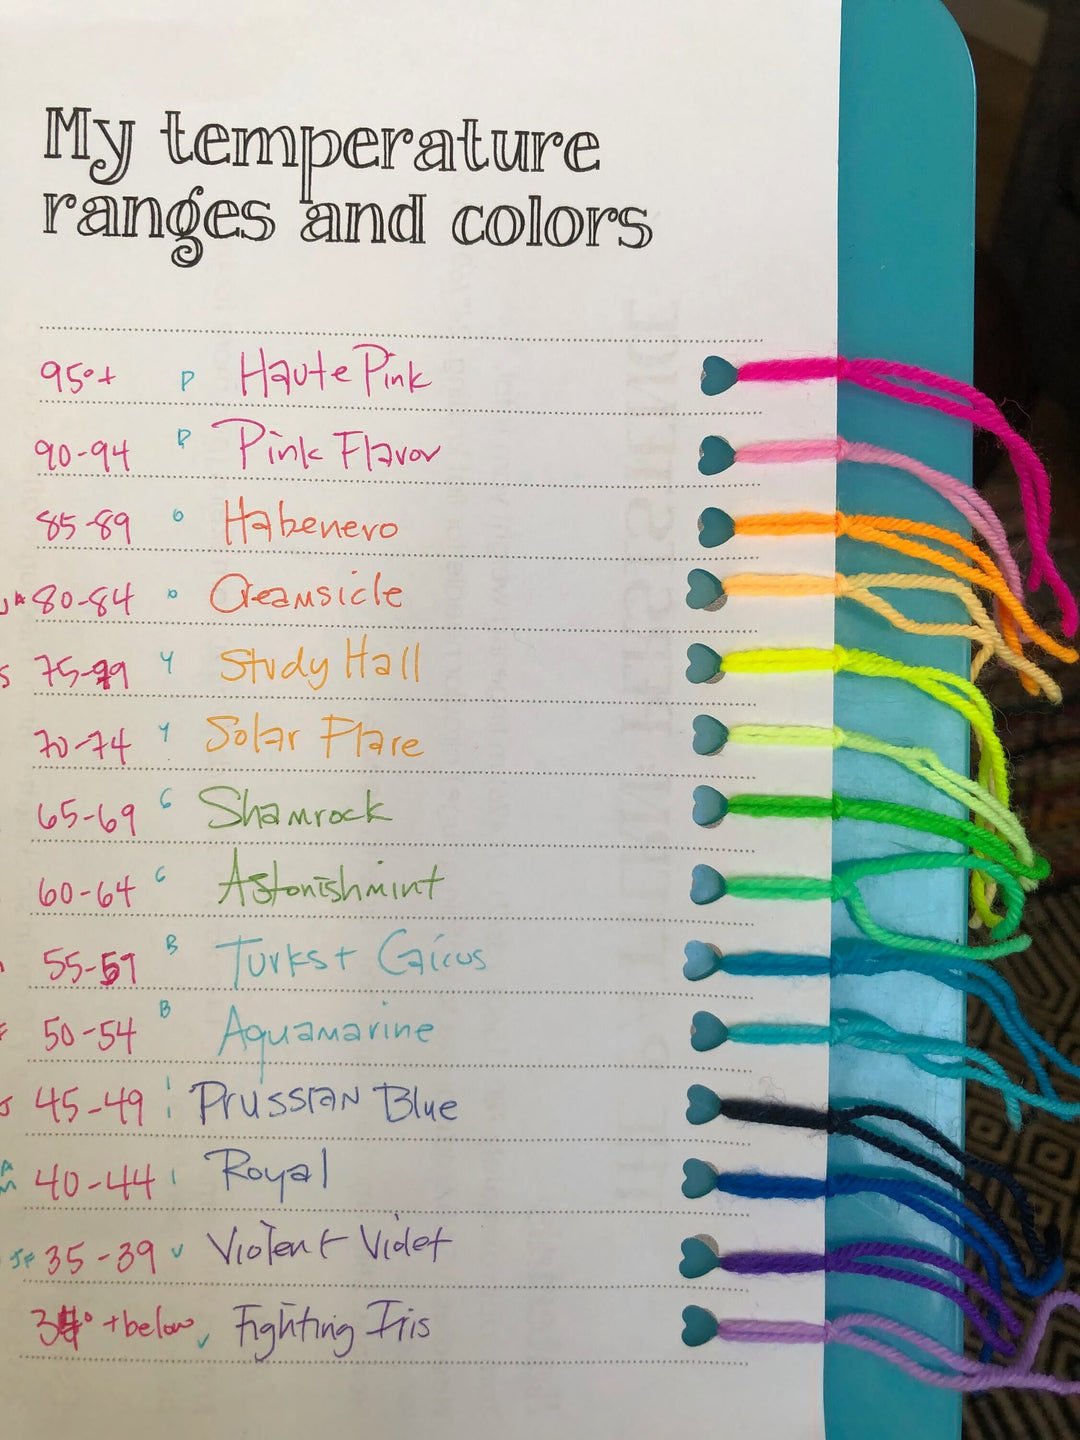 My temperature
ranges and colors
95°+ P Haute Pink
90-94 P Pink Flavor
85-89 O Habenero
80-84 O Creamsicle
75-79 Y Study Hall
70-74 Y Solar Flare
65-69 G Shamrock
60-64 G Astonishmint
55-59 B Turks + Caicos
50-54 B Aquamarine
45-49 I Prussian Blue
40-44 I Royal
JF 35-39 V Violent Violet
34° + below V Fighting Iris